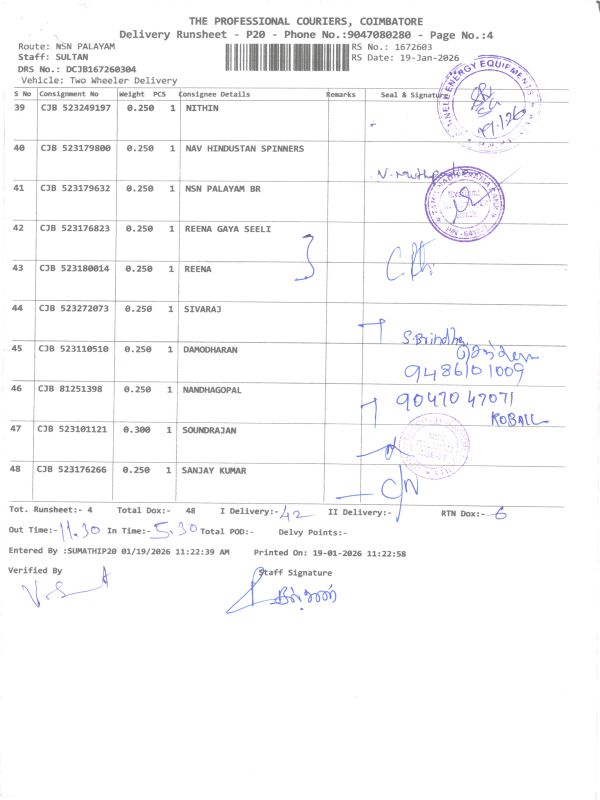 THE PROFESSIONAL COURIERS, COIMBATORE
Delivery Runsheet - P20 - Phone No.:9047080280 - Page No.:4
Route: NSN PALAYAM RS No.: 1672603
Staff: SULTAN RS Date: 19-Jan-2026
DRS No.: DCJB167260304
Vehicle: Two Wheeler Delivery
S No Consignment No Weight PCS Consignee Details Remarks Seal & Signature
39 CJB 523249197 0.250 1 NITHIN
40 CJB 523179800 0.250 1 NAV HINDUSTAN SPINNERS
41 CJB 523179632 0.250 1 NSN PALAYAM BR
42 CJB 523176823 0.250 1 REENA GAYA SEELI
43 CJB 523180014 0.250 1 REENA
44 CJB 523272073 0.250 1 SIVARAJ
S.Brindha
45 CJB 523110510 0.250 1 DAMODHARAN
9486101009
46 CJB 81251398 0.250 1 NANDHAGOPAL
9047047071
47 CJB 523101121 0.300 1 SOUNDRAJAN
48 CJB 523176266 0.250 1 SANJAY KUMAR
C/N
Tot. Runsheet:- 4 Total Dox:- 48 I Delivery:- 42 II Delivery:- RTN Dox:- 6
Out Time:- 11.30 In Time:- 5.30 Total POD:- Delvy Points:-
Entered By :SUMATHIP20 01/19/2026 11:22:39 AM Printed On: 19-01-2026 11:22:58
Verified By Staff Signature